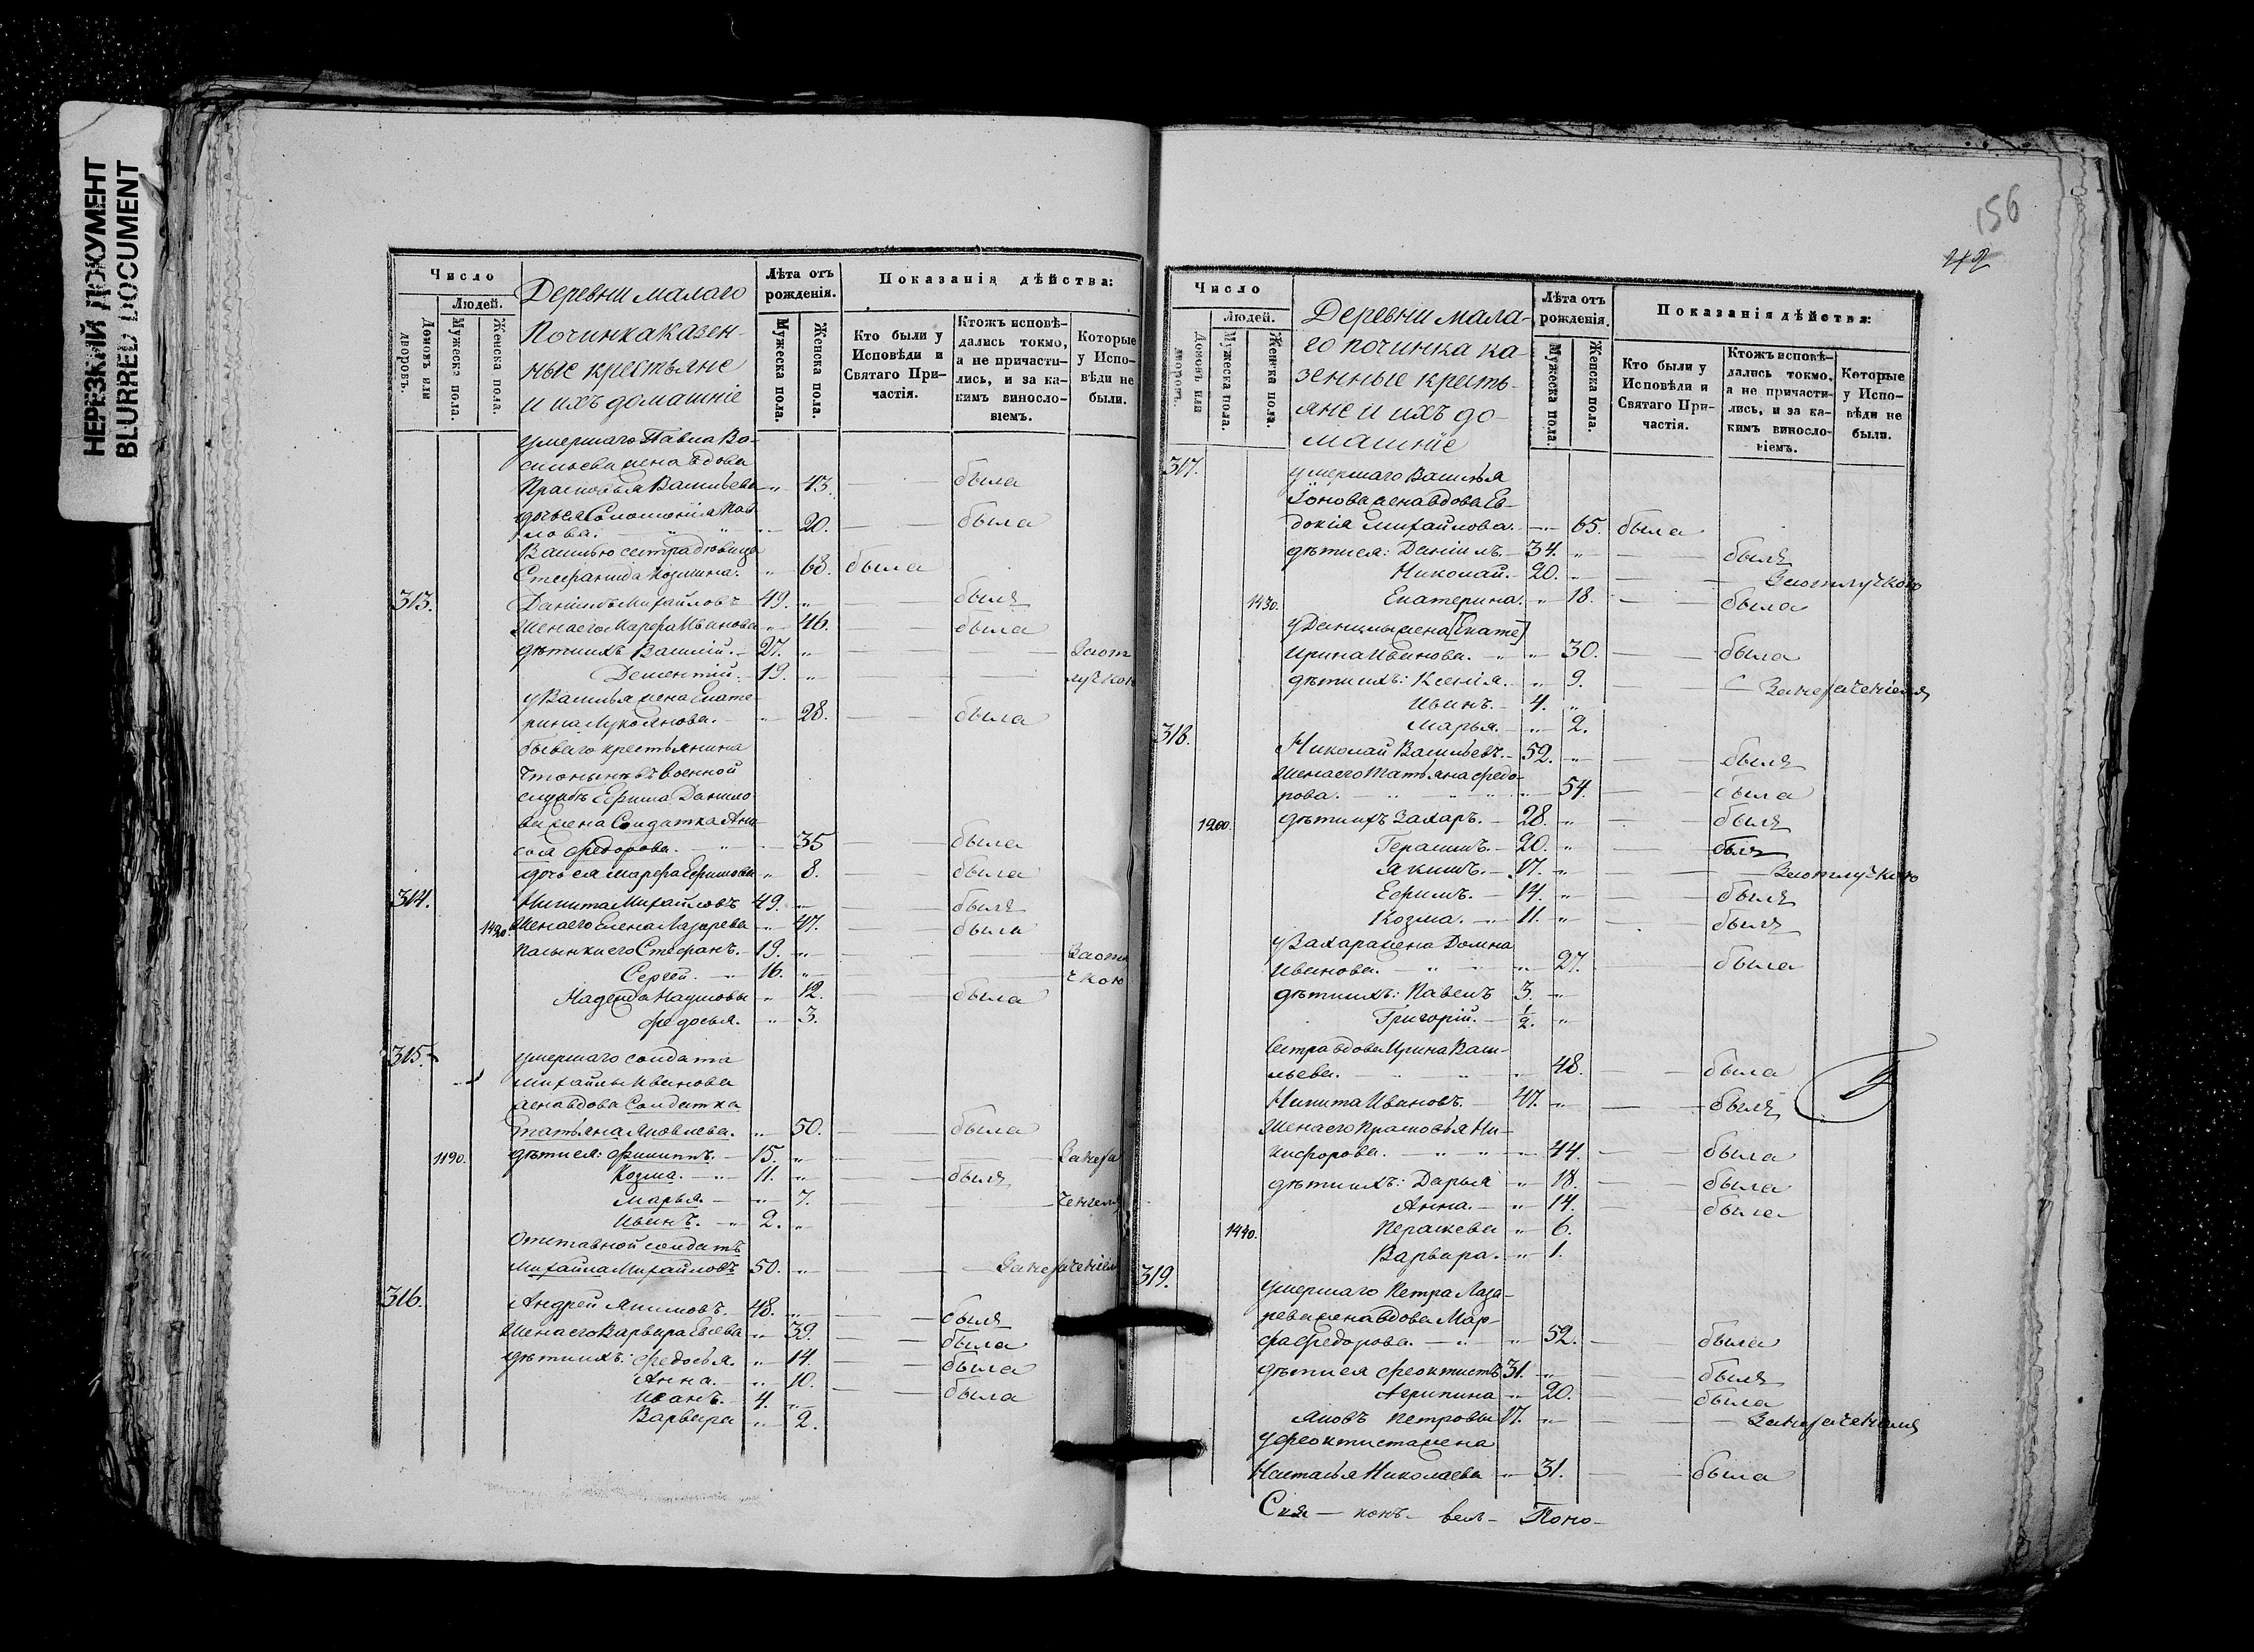 НЕРЕЗКИЙ ДОКУМЕНТ
BLURRED DOCUMENT
Число
Людей.
Домовъ или дворовъ.
Мужеска пола.
Женска пола.
Деревни малаго
Починка казен-
ные крестьяне
и ихъ домашніе
Лѣта отъ рожденія.
Мужеска пола.
Женска пола.
Показанія дѣйства:
Кто были у Исповѣди и Святаго При-частія.
Ктожъ исповѣ-дались токмо, а не причасти-лись, и за ка-кимъ винословіемъ.
Которые у Испо-вѣди не были.
умершаго Павла Ва-
сильева жена вдова
Прасковья Васильева " 43. была
дочь ея Соломонія Пав
лова. 20. была
Василью сестра девица
Стефанида Козмина. " 68. была
313. Даніилъ Михайловъ 49. " былъ
Жена его Марфа Иванова " 46. была
дѣти ихъ Василій. 27. " За от
Дементій. 19. " лучкою
у Василья жена Екате-
рина Лукоянова. " 28. была
бываго крестьянина
что нынѣ въ военной
службѣ Ефима Данило
ва жена Солдатка Ани
сья Федорова. 35 была
дочь ея Марфа Ефимова " 8. была
314. Никита Михайловъ 49. " былъ
1420. Жена его Елена Лазарева " 47. была
Пасынки его Стефанъ. 19. " За отл
Сергей. 16. " чкою
Надежда Наумовы " 12. была
Федосья. " 3.
315. умершаго солдата
Михайлы Иванова
жена вдова Солдатка
Татьяна Яковлева. " 50. была
1190. дѣти ея: Филиппъ. 15. " За нера
Козма. 11. " былъ
Марья. " 7. ченіемъ
Иванъ. 2. "
Отставной солдатъ
Михайла Михайловъ 50. " За нераченіем
316. Андрей Якимовъ. 48. " былъ
Жена его Варвара Евсева " 39. была
дѣти ихъ: Федосья. " 14. была
Анна. " 10. была
Иванъ. 4. "
Варвара " 2.
156
Число
Людей.
Домовъ или дворовъ.
Мужеска пола.
Женска пола.
Деревни мала-
го починка ка-
зенные кресть-
яне и ихъ до-
машніе
Лѣта отъ рожденія.
Мужеска пола.
Женска пола.
Показанія дѣйства:
Кто были у Исповѣди и Святаго При-частія.
Ктожъ исповѣ-дались токмо, а не причасти-лись, и за ка-кимъ винословіемъ.
Которые у Испо-вѣди не были.
317. умершаго Василья
Іонова жена вдова Ев-
докія Михайлова. " 65. была
дѣти ея: Даніилъ. 34. " былъ
Николай. 20. " За отлучкою
1430. Екатерина. " 18. была
у Данилы жена [Екате]
Ирина Иванова. " 30. была
дѣти ихъ: Ксенія. " 9. За нераченіемъ
Иванъ. 4. "
Марья. " 2.
318. Николай Васильевъ. 52. " былъ
Жена его Татьяна Федо-
рова. " 54. была
1200. дѣти ихъ Захаръ. 28. " былъ
Герасимъ. 20. " былъ
Якимъ. 17. " За отлучкою
Ефимъ. 14. " былъ
Козма. 11. " былъ
у Захара жена Домна
Иванова. " 27. была
дѣти ихъ: Павелъ 3. "
Григорій. 1/2. "
Сестра вдова Ирина Васи-
льева. " 48. была
Никита Ивановъ. 47. " былъ
Жена его Прасковья Ни-
кифорова. " 44. была
дѣти ихъ: Дарья " 18. была
Анна. " 14. была
1440. Параскева " 6.
Варвара. " 1.
319. умершаго Петра Лаза-
рева жена вдова Мар-
фа Федорова. " 52. была
дѣти ея Феоктистъ 31. " былъ
Агрипина " 20. была
Яковъ Петровы 17. " За нераченіемъ
у Феоктиста жена
Наталья Николаева " 31. была